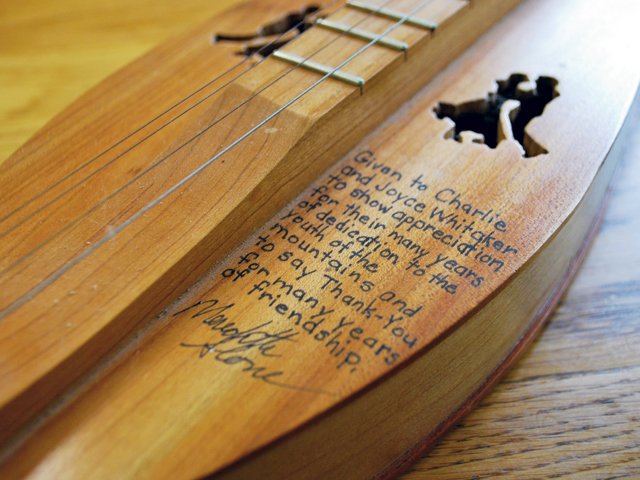 Given to Charlie
and Joyce Whitaker
to show appreciation
for their many years
of dedication to the
youth of the
mountains and
to say Thank-You
for many years
of friendship.
Meredith